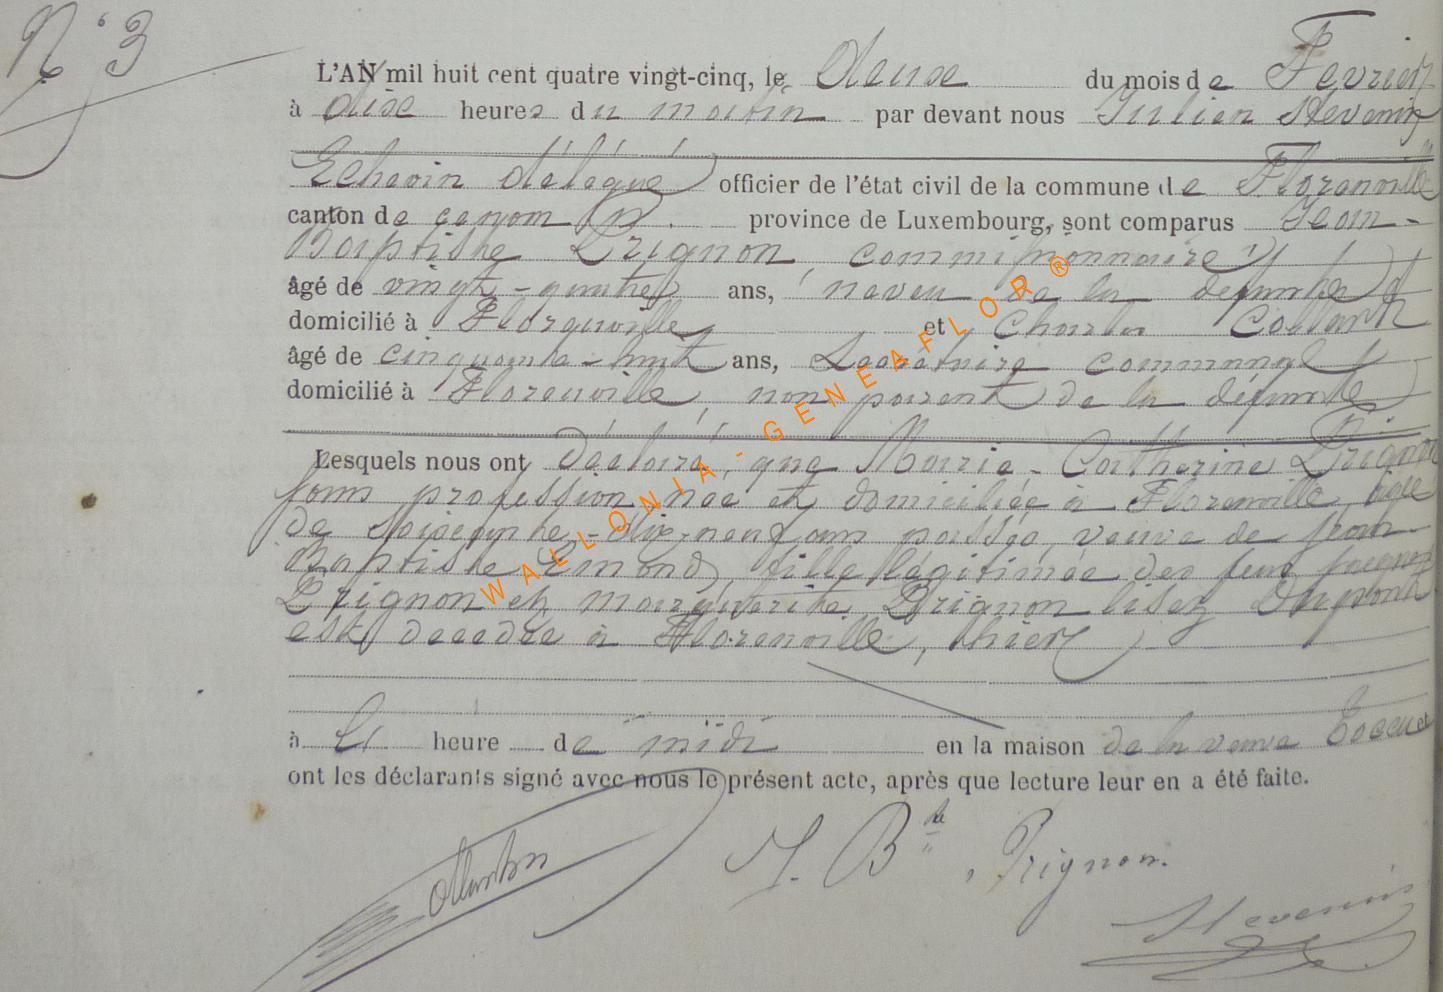 N° 3
L'AN mil huit cent quatre vingt-cinq, le deuse du mois de Fevrier
à dise heures du matin par devant nous Julien Stevenin
Echevin délégué officier de l'état civil de la commune de Florenville
canton de canton province de Luxembourg, sont comparus Jean-
Baptiste Prignon, commissionnaire
âgé de vingt-quatre ans, neveu de la defunte
domicilié à Florenville et Charles Collart
âgé de cinquante-huit ans, Secrétaire communal
domicilié à Florenville, non parent de la défunte
Lesquels nous ont déclaré, que Marie-Catherine Prignon
sans profession, née et domiciliée à Florenville, agée
de Soisente-dix-neuf ans passée, veuve de Jean
Baptiste Emond, fille légitimée des feux Jacques
Prignon et marguerite Prignon lesez Dupont
est decedée à Florenville, hier
à heure de midi en la maison de la veuve
ont les déclarants signé avec nous le présent acte, après que lecture leur en a été faite.
J. Bte Prignon.
Stevenin
WALLONIA - GENEAFLOR ®